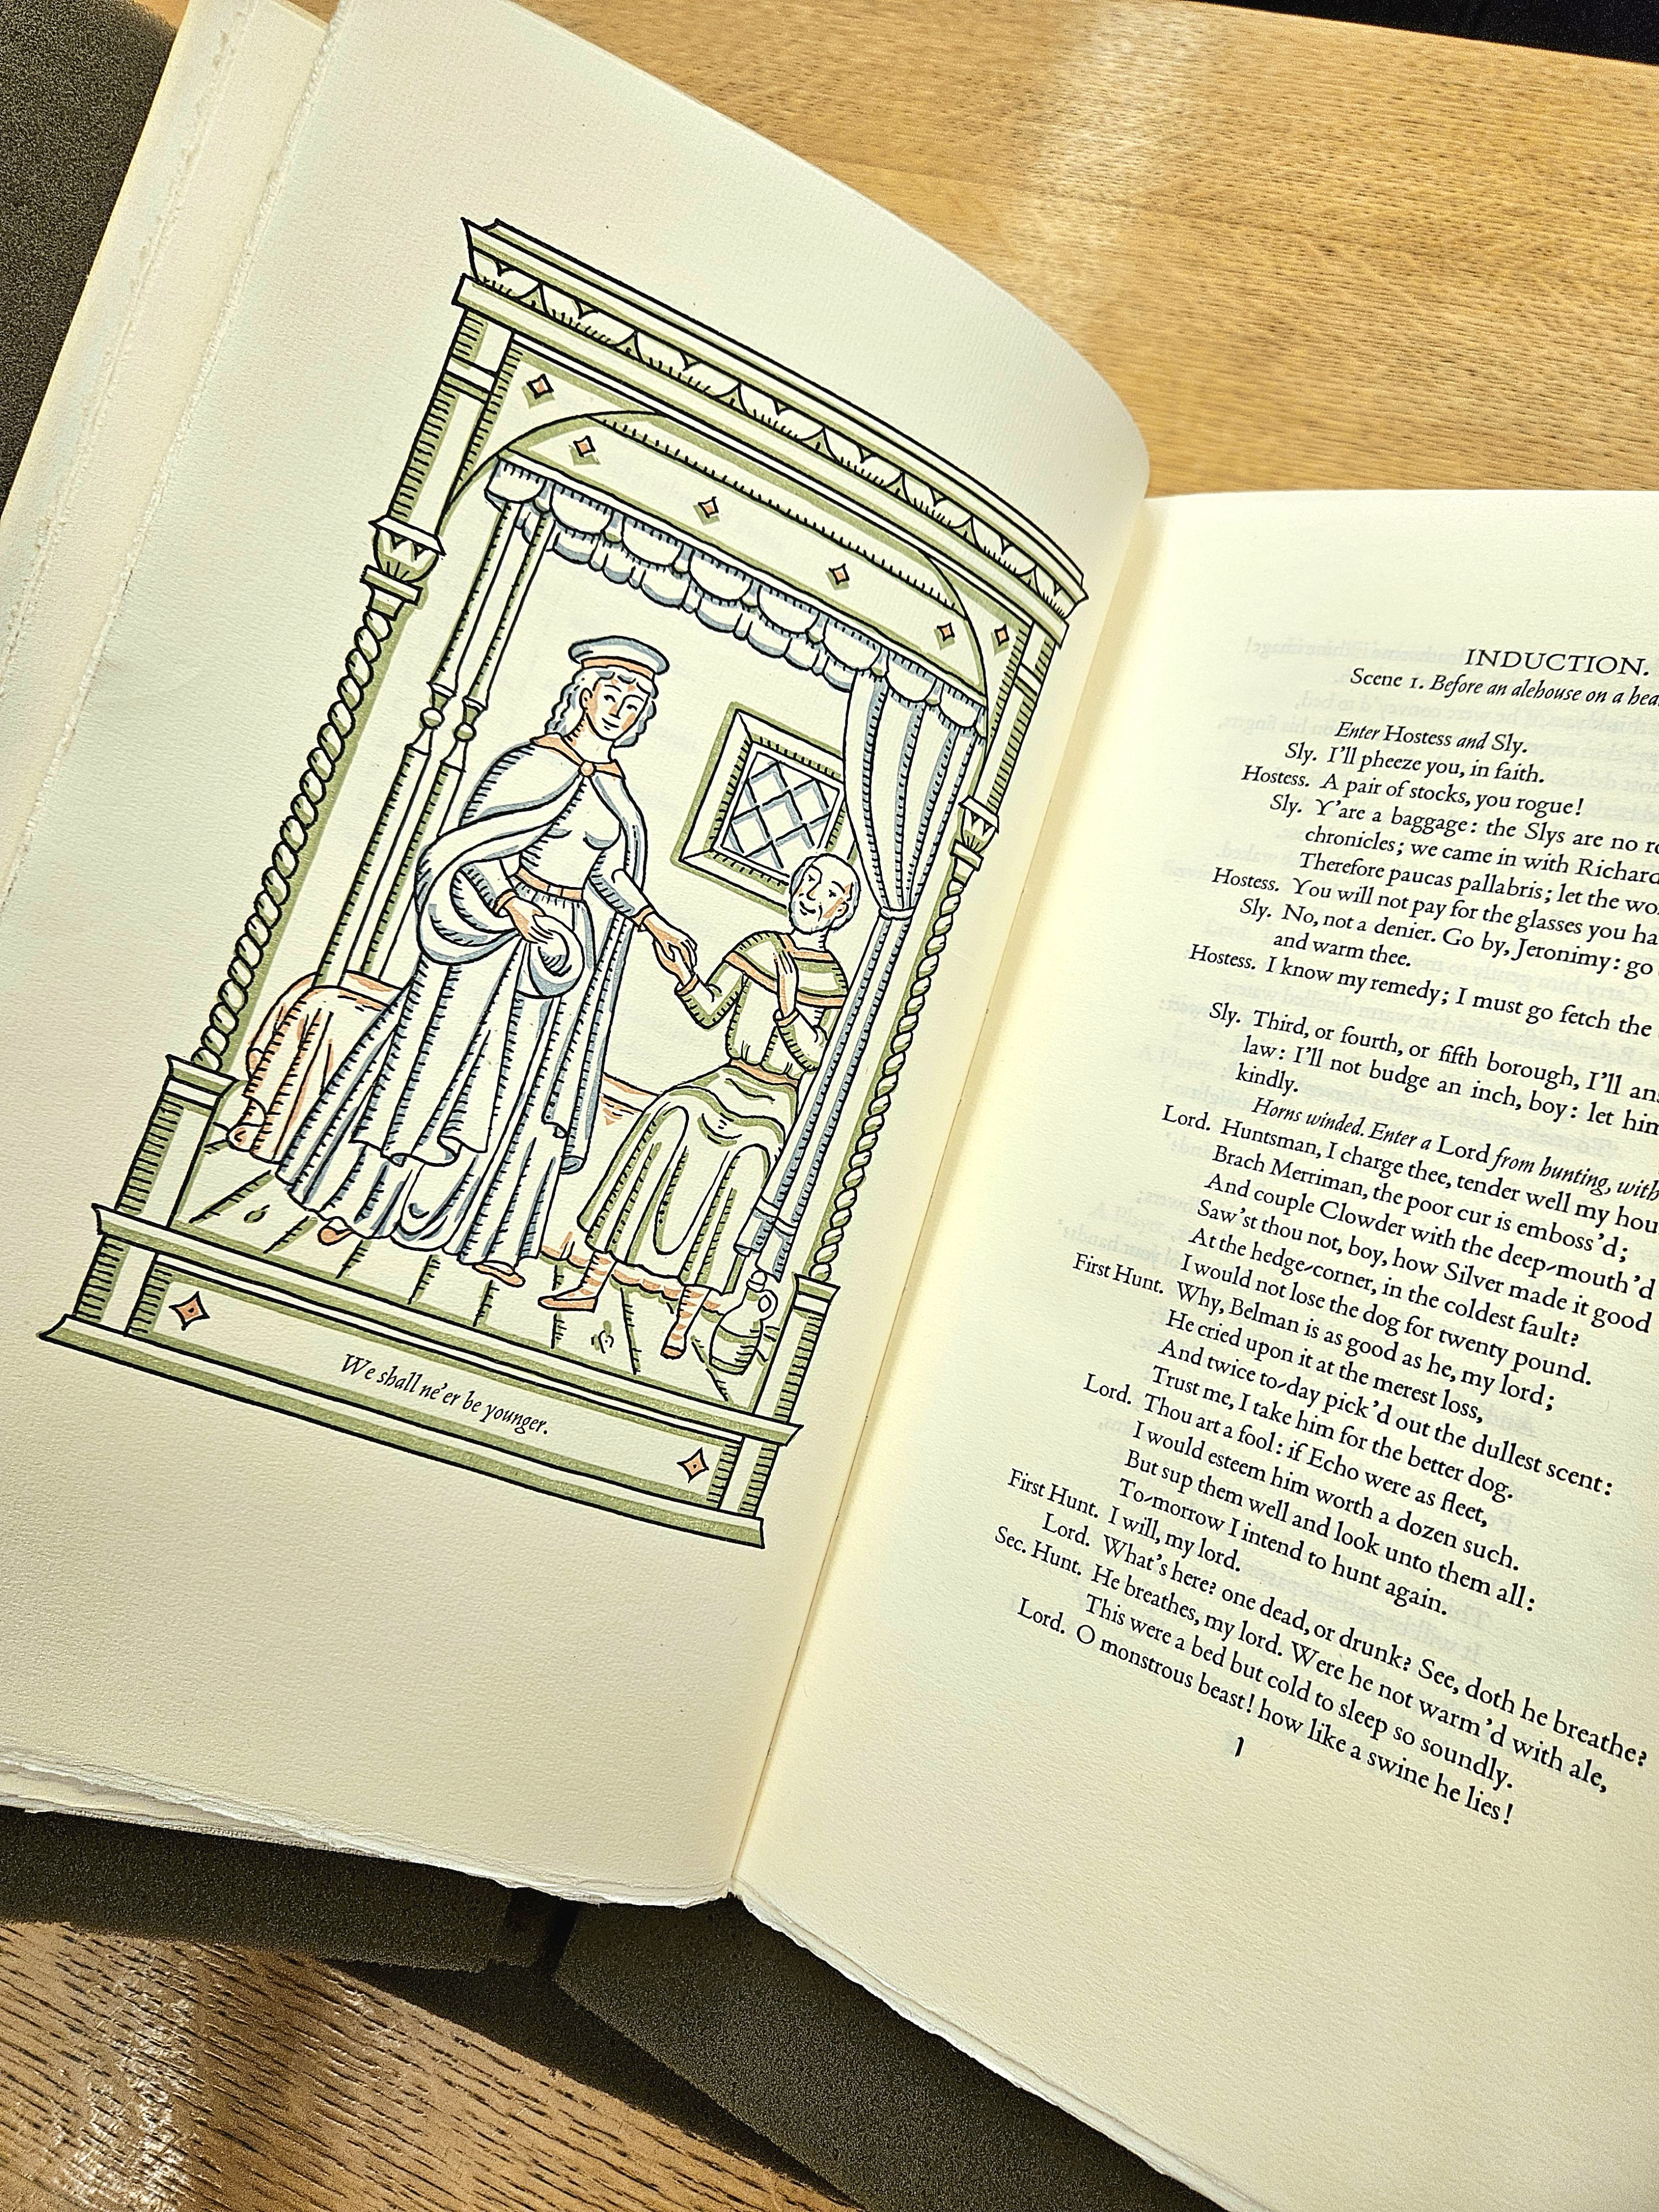 We shall ne'er be younger.
INDUCTION.
Scene 1. Before an alehouse on a
Enter Hostess and Sly.
Sly. I'll pheeze you, in faith.
Hostess. A pair of stocks, you rogue!
Sly. Y'are a baggage: the Slys are no
chronicles; we came in with Richard
Therefore paucas pallabris; let the
Hostess. You will not pay for the glasses you
Sly. No, not a denier. Go by, Jeronimy: go
and warm thee.
Hostess. I know my remedy; I must go fetch the
Sly. Third, or fourth, or fifth borough, I'll
law: I'll not budge an inch, boy: let him
kindly.
Horns winded. Enter a Lord from hunting, with
Lord. Huntsman, I charge thee, tender well my
Brach Merriman, the poor cur is emboss'd;
And couple Clowder with the deep-mouth'd
Saw'st thou not, boy, how Silver made it good
At the hedge-corner, in the coldest fault?
I would not lose the dog for twenty pound.
First Hunt. Why, Belman is as good as he, my lord;
He cried upon it at the merest loss,
And twice to-day pick'd out the dullest scent:
Trust me, I take him for the better dog.
Lord. Thou art a fool: if Echo were as fleet,
I would esteem him worth a dozen such.
But sup them well and look unto them all:
To-morrow I intend to hunt again.
First Hunt. I will, my lord.
Lord. What's here? one dead, or drunk? See, doth he breathe?
Sec. Hunt. He breathes, my lord. Were he not warm'd with ale,
This were a bed but cold to sleep so soundly.
Lord. O monstrous beast! how like a swine he lies!
1